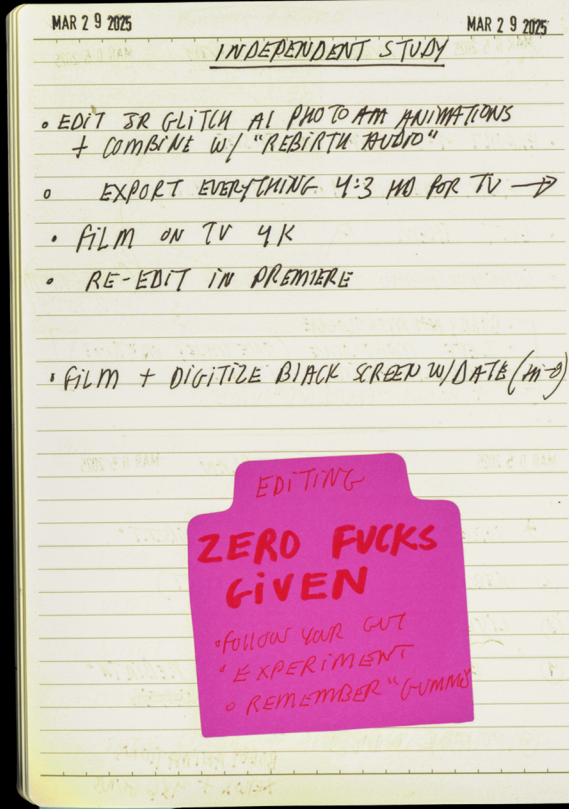 MAR 29 2025 MAR 29 2025
INDEPENDENT STUDY
• EDIT JR GLITCH AI PHOTO AM ANIMATIONS
+ COMBINE W/ "REBIRTH AUDIO"
• EXPORT EVERYTHING 4:3 HD FOR TV →
• FILM ON TV 4K
• RE-EDIT IN PREMIERE
• FILM + DIGITIZE BLACK SCREEN W/DATE
EDITING
ZERO FUCKS
GIVEN
• FOLLOW YOUR GUT
• EXPERIMENT
• REMEMBER "GUMMO